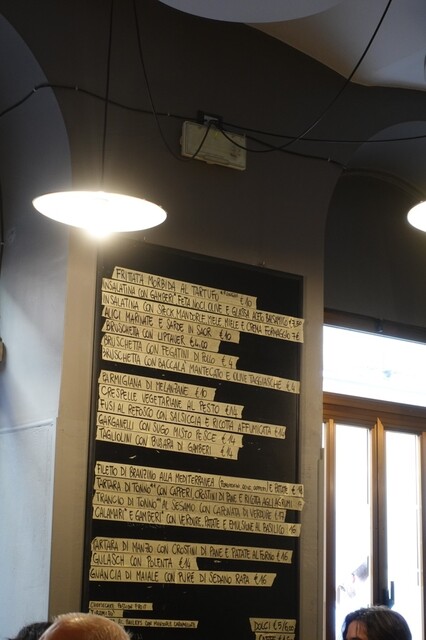 FRITTATA MORBIDA AL TARTUFO € 10
INSALATINA CON GAMBERI* FETA NOCI OLIVE E GLASSA ACETO BALSAMICO € 7,50
INSALATINA CON SPECK MANDORLE MELE MIELE E CREMA FORMAGGIO 7 €
ALICI MARINATE E SARDE IN SAOR € 10
BRUSCHETTA CON LIPTAUER € 4,00
BRUSCHETTA CON FEGATINI DI POLLO € 4
BRUSCHETTA CON BACCALÀ MANTECATO E OLIVE TAGGIASCHE € 4
PARMIGIANA DI MELANZANE € 10
CRESPELLE VEGETARIANE AL PESTO € 14
FUSI AL REFOSCO CON SALSICCIA E RICOTTA AFFUMICATA € 14
GARGANELLI CON SUGO MISTO PESCE € 14
TAGLIOLINI CON BUSARA DI GAMBERI € 14
FILETTO DI BRANZINO ALLA MEDITERRANEA E PATATE € 18
TARTARA DI TONNO* CON CAPPERI CROSTINI DI PANE E RICOTTA AGLI AGRUMI
TRANCIO DI TONNO* AL SESAMO CON CAPONATA DI VERDURE € 17
CALAMARI* E GAMBERI* CON VERDURE, PATATE E EMULSIONE AL BASILICO € 16
TARTARA DI MANZO CON CROSTINI DI PANE E PATATE AL FORNO € 16
GULASCH CON POLENTA € 14
GUANCIA DI MAIALE CON PURÈ DI SEDANO RAPA € 16
DOLCI € 5/6,00